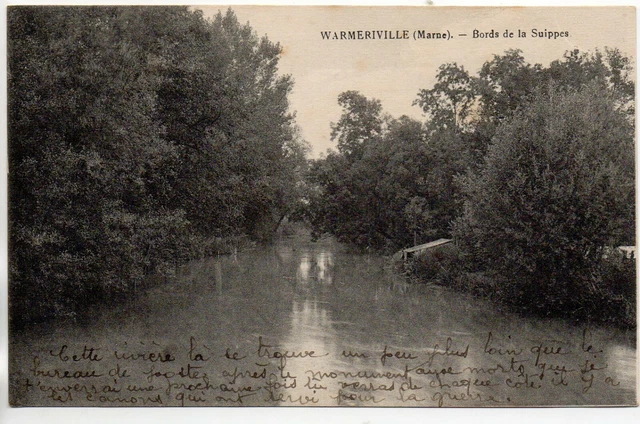 WARMERIVILLE (Marne). — Bords de la Suippes
Cette rivière là se trouve un peu plus loin que le
bureau de poste, après le monument aux morts que je
t'enverrai une prochaine fois tu verras de chaque côté il y a
les canons qui ont servi pour la guerre.